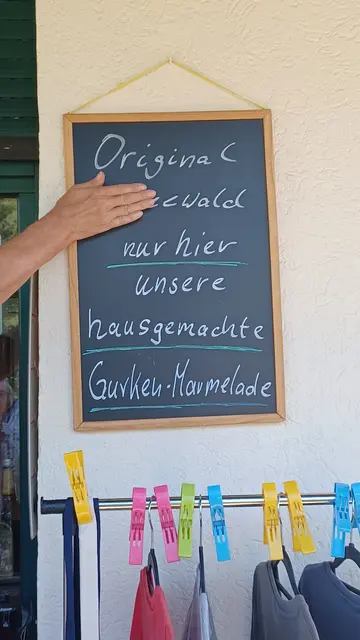 Original
nur hier
unsere
hausgemachte
Gurken-Marmelade